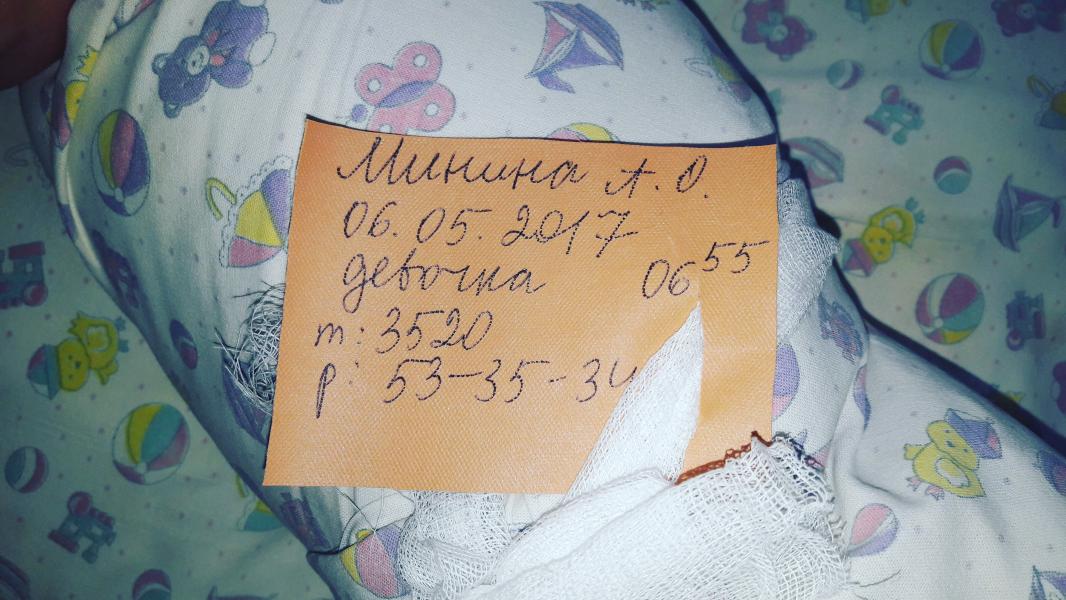 Минина А. О.
06.05.2017
девочка 06 55
т: 3520
р: 53-35-34